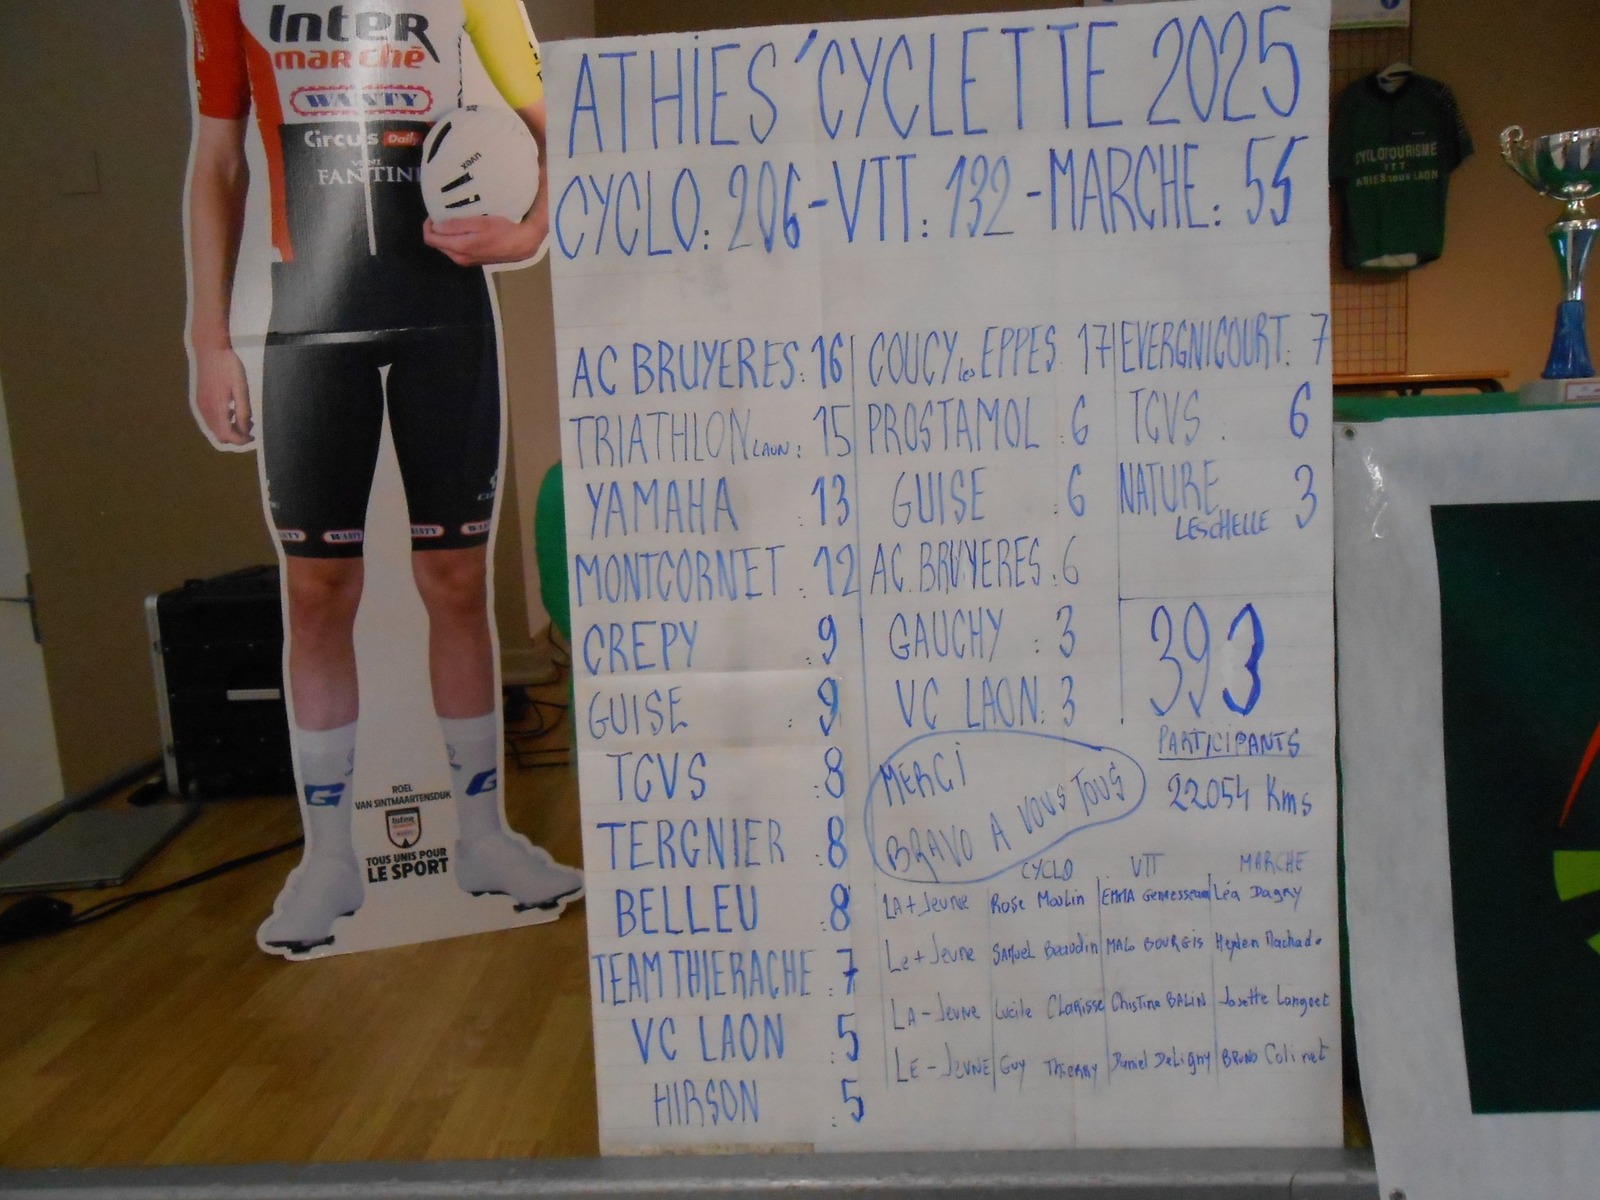 InTER
marchē
WANTY
Circus Daily
VINI
FANTINI
uvex
WANTY
ROEL
VAN SINTMAARTENSDIJK
Inter
TOUS UNIS POUR
LE SPORT
ATHIES'CYCLETTE 2025
CYCLO: 206-VTT: 132-MARCHE: 55
AC BRUYERES: 16
TRIATHLON LAON: 15
YAMAHA : 13
MONTCORNET : 12
CREPY : 9
GUISE : 9
TCVS : 8
TERGNIER : 8
BELLEU : 8
TEAM THIERACHE : 7
VC LAON : 5
HIRSON : 5
COUCY les EPPES: 17
PROSTAMOL : 6
GUISE : 6
AC. BRUYERES : 6
GAUCHY : 3
VC LAON: 3
EVERGNICOURT: 7
TCVS : 6
NATURE 3
LESCHELLE
393
PARTICIPANTS
22054 Kms
MERCI
BRAVO A VOUS TOUS
CYCLO VTT MARCHE
LA + Jeune Rose Moulin EMMA Léa Dagny
Le + Jeune Samuel Beaudin MALO BOURGIS Hayden Machado
LA - Jeune Lucile Clarisse Christine BALIN Josette Langoet
LE - JeuNE Guy Thierry Daniel DeLigny BRUNO Colinet
CYCLOTOURISME
VTT
ATHIES SOUS LAON